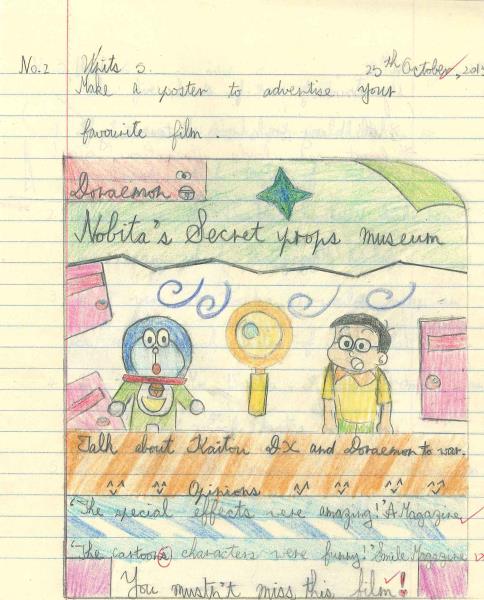 No.2 Units 5. 25th October, 201
Make a poster to advertise your
favourite film.
Doraemon
Nobita's Secret props museum
Talk about Kaitou DX and Doraemon to war.
Opinions
"The special effects were amazing!" A Magazine
"The cartoons characters were funny!" Smile Magazine
You mustn't miss this film!